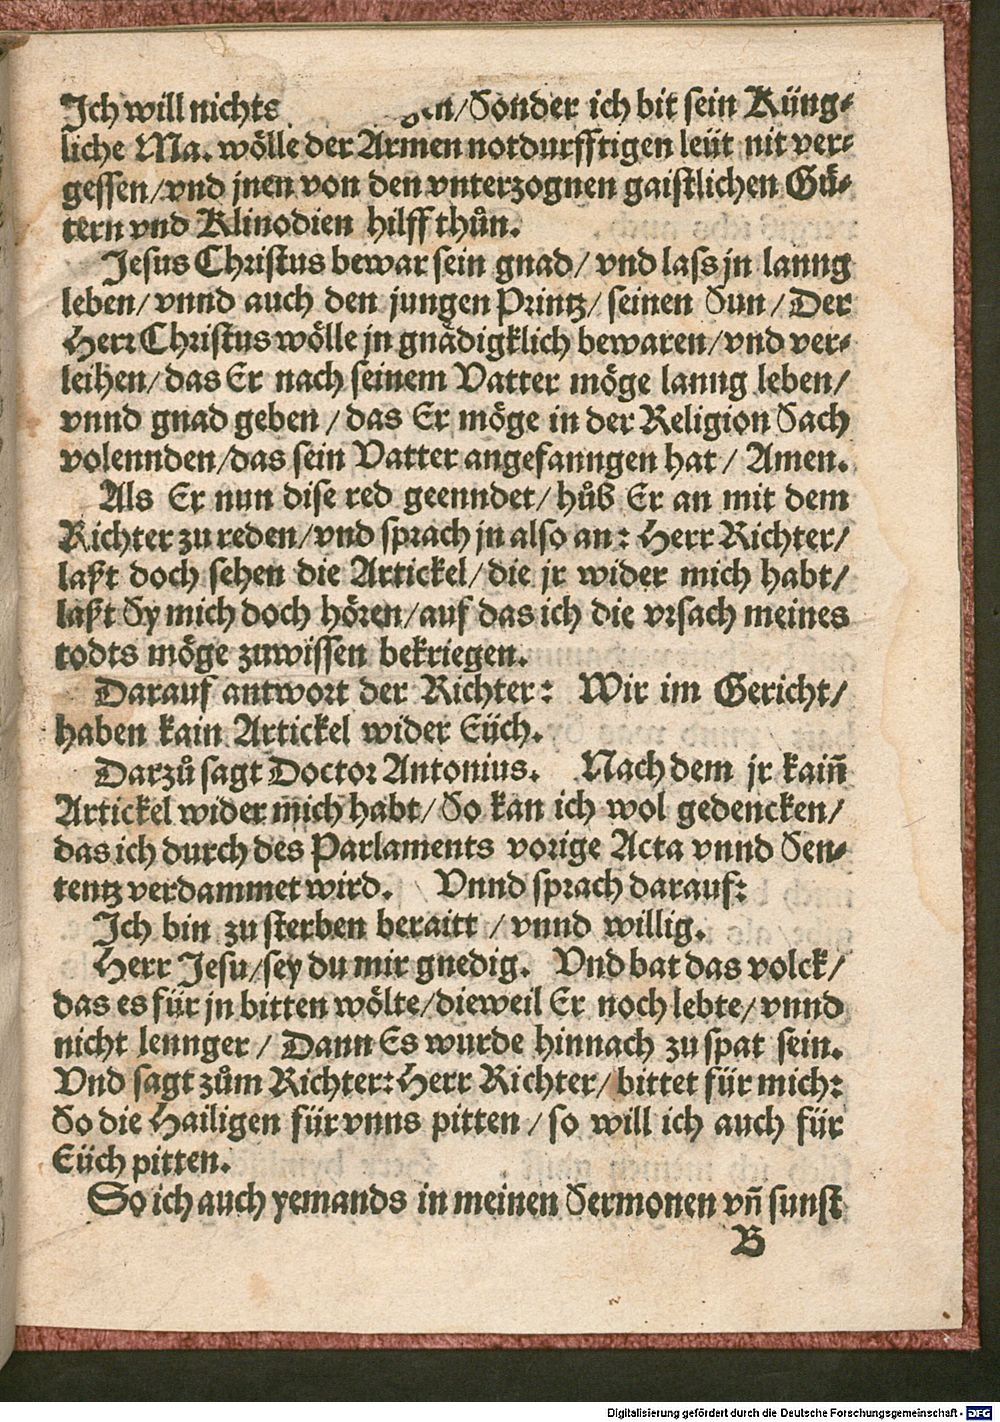 Ich will nichts /Sonder ich bit sein Küng⸗
liche Ma. wölle der Armen notdurfftigen leüt nit ver⸗
gessen/vnd jnen von den vnterzognen gaistlichen Gü⸗
tern vnd Klinodien hilff thůn.
Jesus Christus bewar sein gnad/ vnd lass jn lanng
leben/ vnnd auch den jungen Printz/ seinen Sun/ Der
Herr Christus wölle jn gnädigklich bewaren/vnd ver⸗
leihen/das Er nach seinem Vatter möge lanng leben/
vnnd gnad geben / das Er möge in der Religion Sach
volennden/das sein Vatter angefanngen hat/ Amen.
Als Er nun dise red geenndet/ hůb Er an mit dem
Richter zu reden/vnd sprach jn also an: Herr Richter/
laßt doch sehen die Artickel/die jr wider mich habt/
laßt Sy mich doch hören/auf das ich die vrsach meines
todts möge zuwissen bekriegen.
Darauf antwort der Richter: Wir im Gericht/
haben kain Artickel wider Eüch.
Darzů sagt Doctor Antonius. Nach dem jr kain̄
Artickel wider mich habt/ So kan ich wol gedencken/
das ich durch des Parlaments vorige Acta vnnd Sen⸗
tentz verdammet wird. Vnnd sprach darauf:
Ich bin zu sterben beraitt / vnnd willig.
Herr Jesu/sey du mir gnedig. Vnd bat das volck/
das es für jn bitten wölte/dieweil Er noch lebte/ vnnd
nicht lennger / Dann Es wurde hinnach zu spat sein.
Vnd sagt zům Richter: Herr Richter/ bittet für mich:
So die Hailigen für vnns pitten / so will ich auch für
Eüch pitten.
So ich auch yemands in meinen Sermonen vn̄ sunst
B
Digitalisierung gefördert durch die Deutsche Forschungsgemeinschaft - DFG